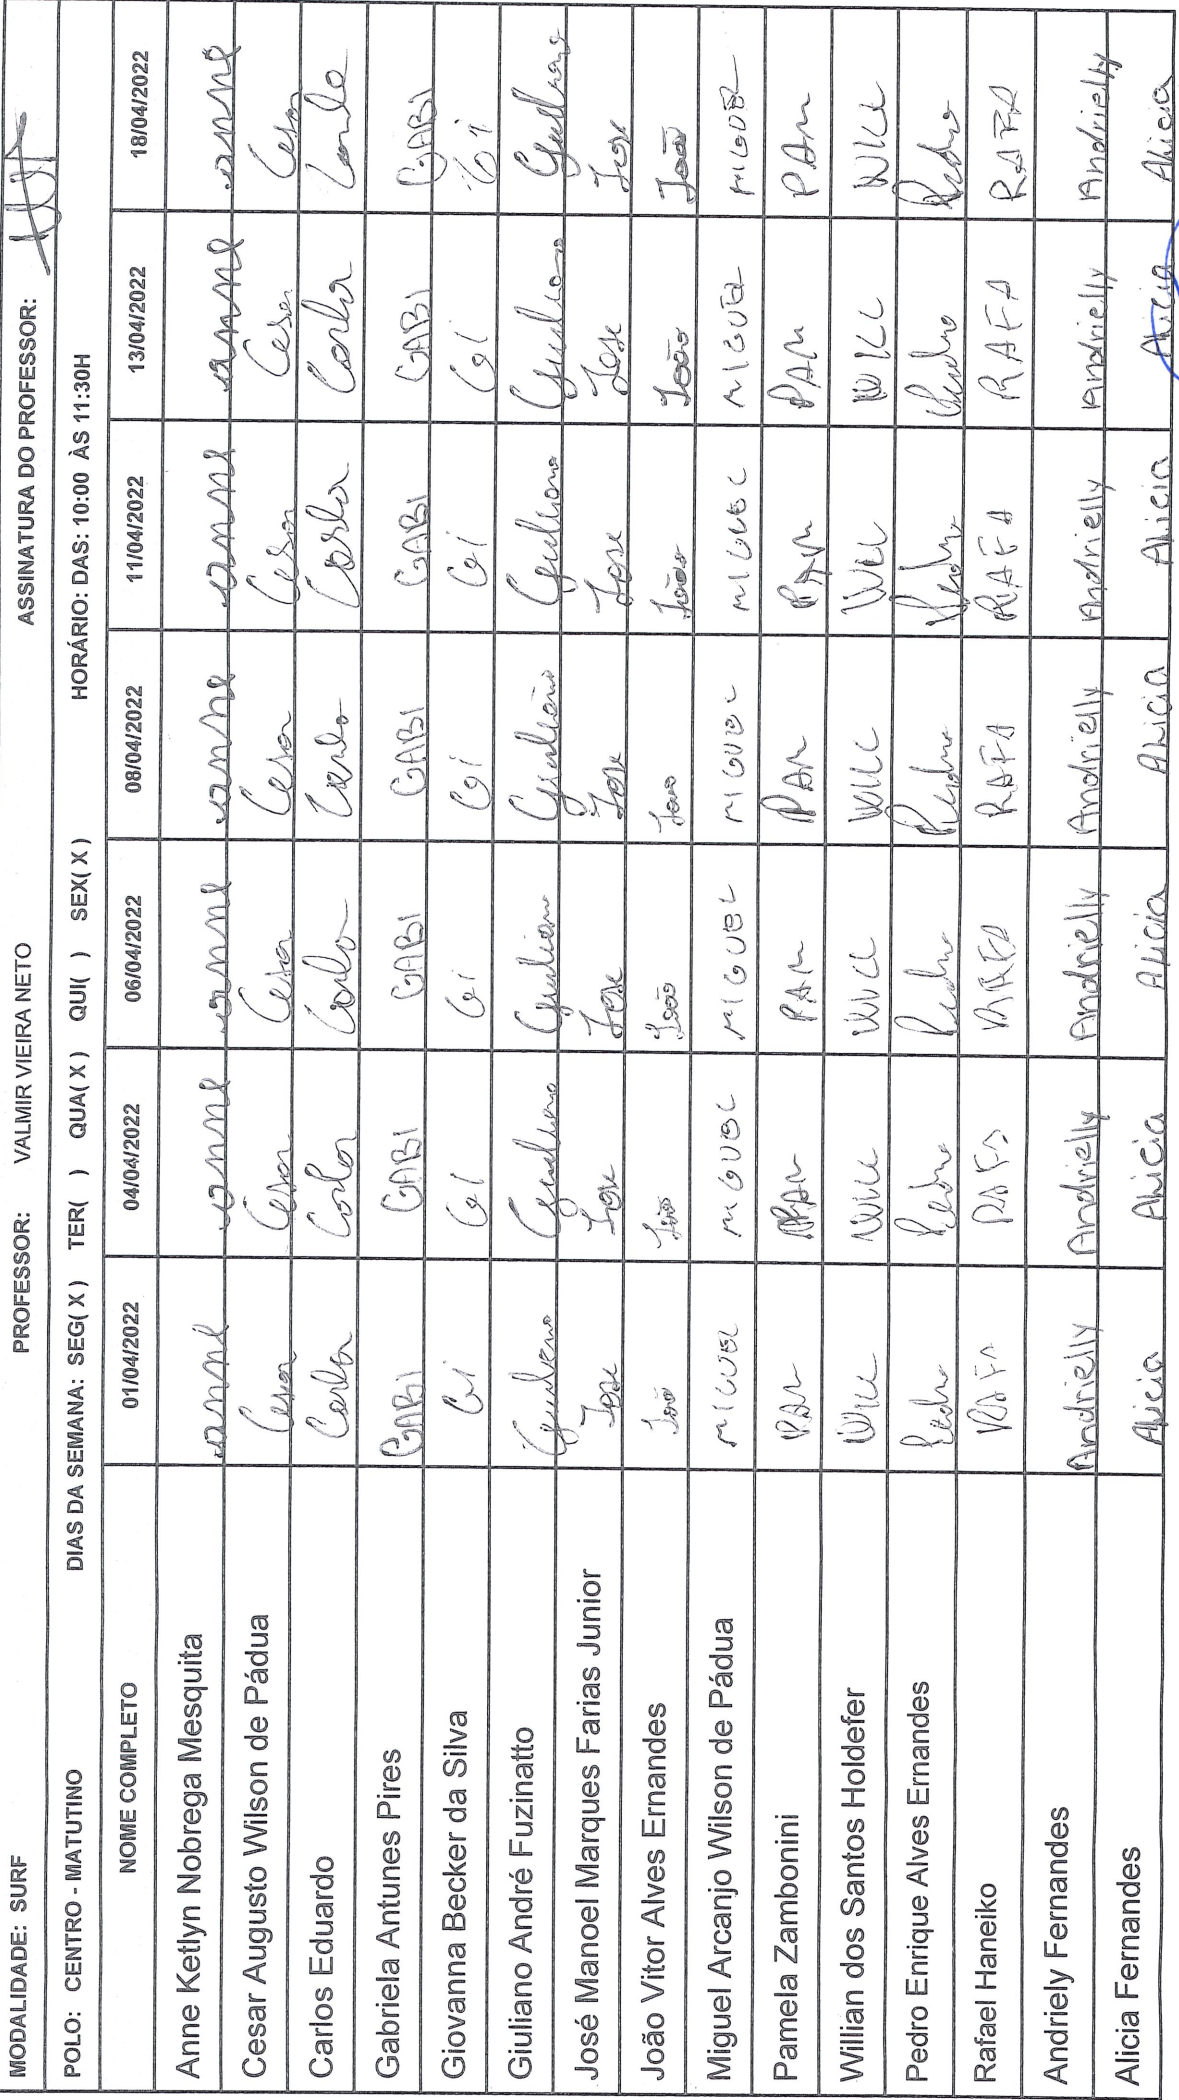 MODALIDADE: SURF PROFESSOR: VALMIR VIEIRA NETO ASSINATURA DO PROFESSOR:
POLO: CENTRO - MATUTINO DIAS DA SEMANA: SEG( X ) TER( ) QUA( X ) QUI( ) SEX( X ) HORÁRIO: DAS: 10:00 ÀS 11:30H
NOME COMPLETO 01/04/2022 04/04/2022 06/04/2022 08/04/2022 11/04/2022 13/04/2022 18/04/2022
Anne Ketlyn Nobrega Mesquita anne anne anne anne anne anne anne
Cesar Augusto Wilson de Pádua Cesar Cesar Cesar Cesar Cesar Cesar Cesar
Carlos Eduardo
Gabriela Antunes Pires GABI GABI GABI GABI GABI GABI GABI
Giovanna Becker da Silva Gi Gi Gi Gi Gi Gi Gi
Giuliano André Fuzinatto Giuliano Giuliano Giuliano Giuliano Giuliano Giuliano Giuliano
José Manoel Marques Farias Junior Jose Jose Jose Jose Jose Jose Jose
João Vitor Alves Ernandes João João João João João João João
Miguel Arcanjo Wilson de Pádua MIGUEL MIGUEL MIGUEL MIGUEL MIGUEL MIGUEL MIGUEL
Pamela Zambonini PAM PAM PAM PAM PAM PAM PAM
Willian dos Santos Holdefer WILL WILL WILL WILL WILL WILL WILL
Pedro Enrique Alves Ernandes Pedro Pedro Pedro Pedro Pedro Pedro Pedro
Rafael Haneiko RAFA RAFA RAFA RAFA RAFA RAFA RAFA
Andriely Fernandes Andrielly Andrielly Andrielly Andrielly Andrielly Andrielly Andrielly
Alicia Fernandes Alicia Alicia Alicia Alicia Alicia Alicia Alicia